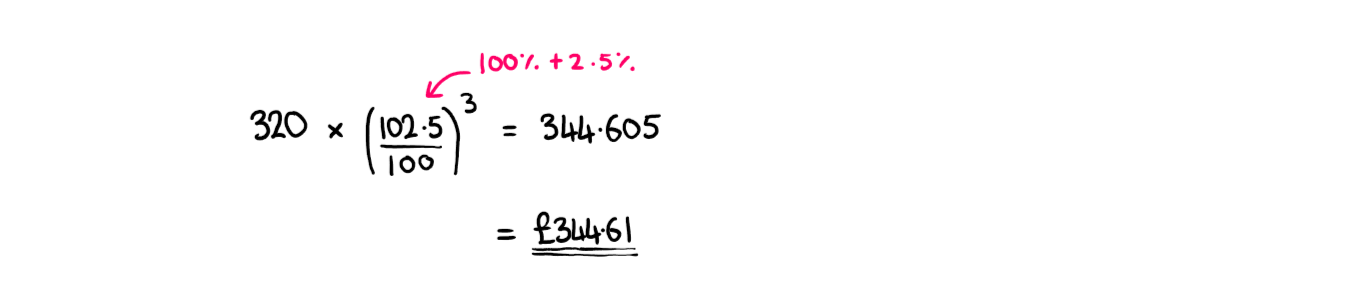 100% + 2.5%
320 × (102.5/100)^3 = 344.605
= £344.61